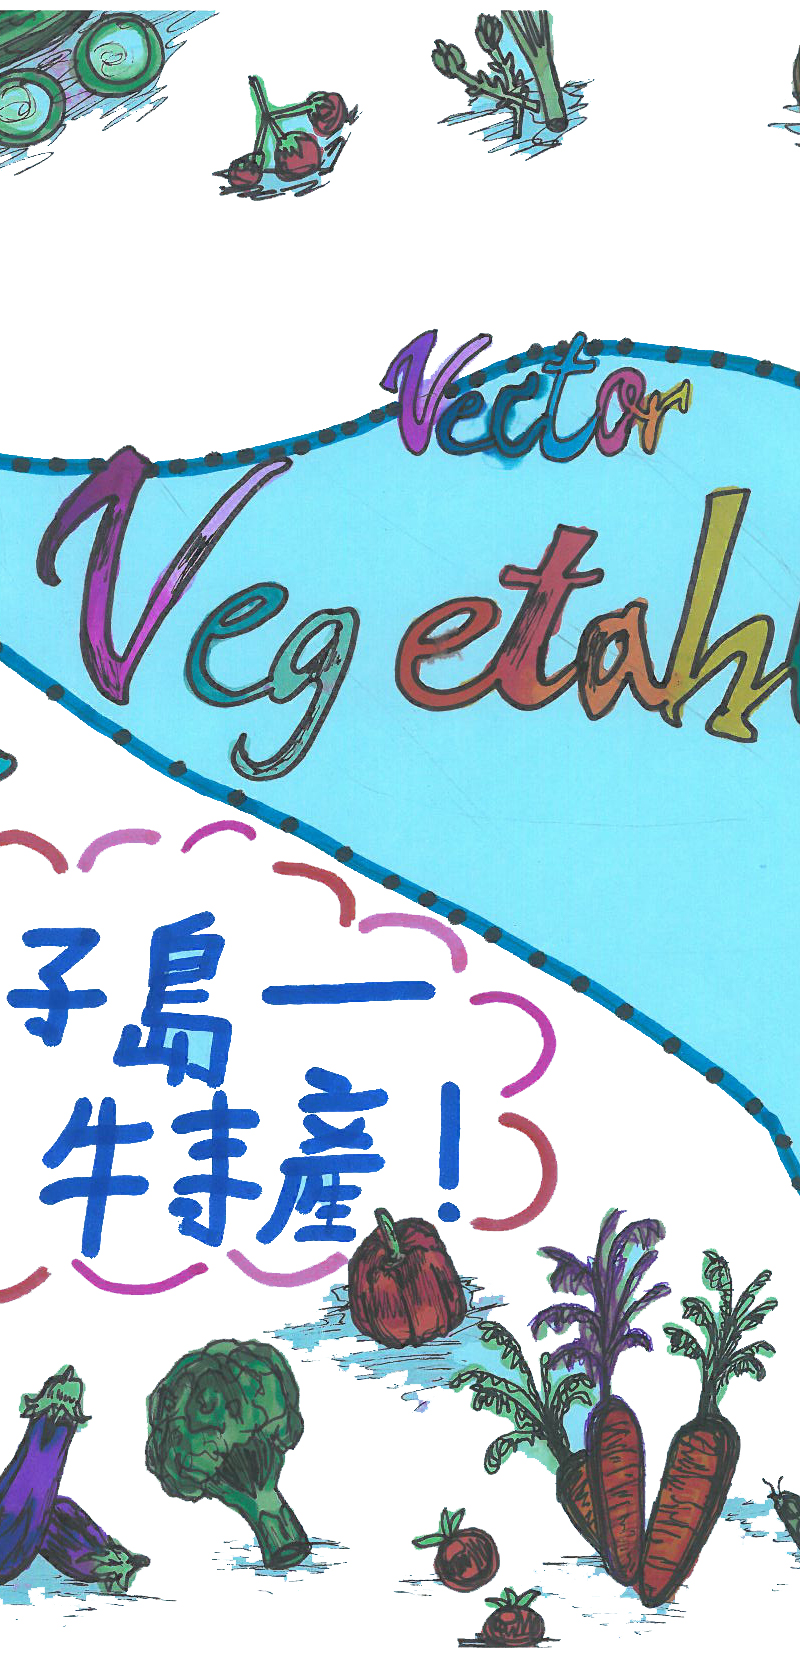 Vector
Vegetab
子島一
特產!